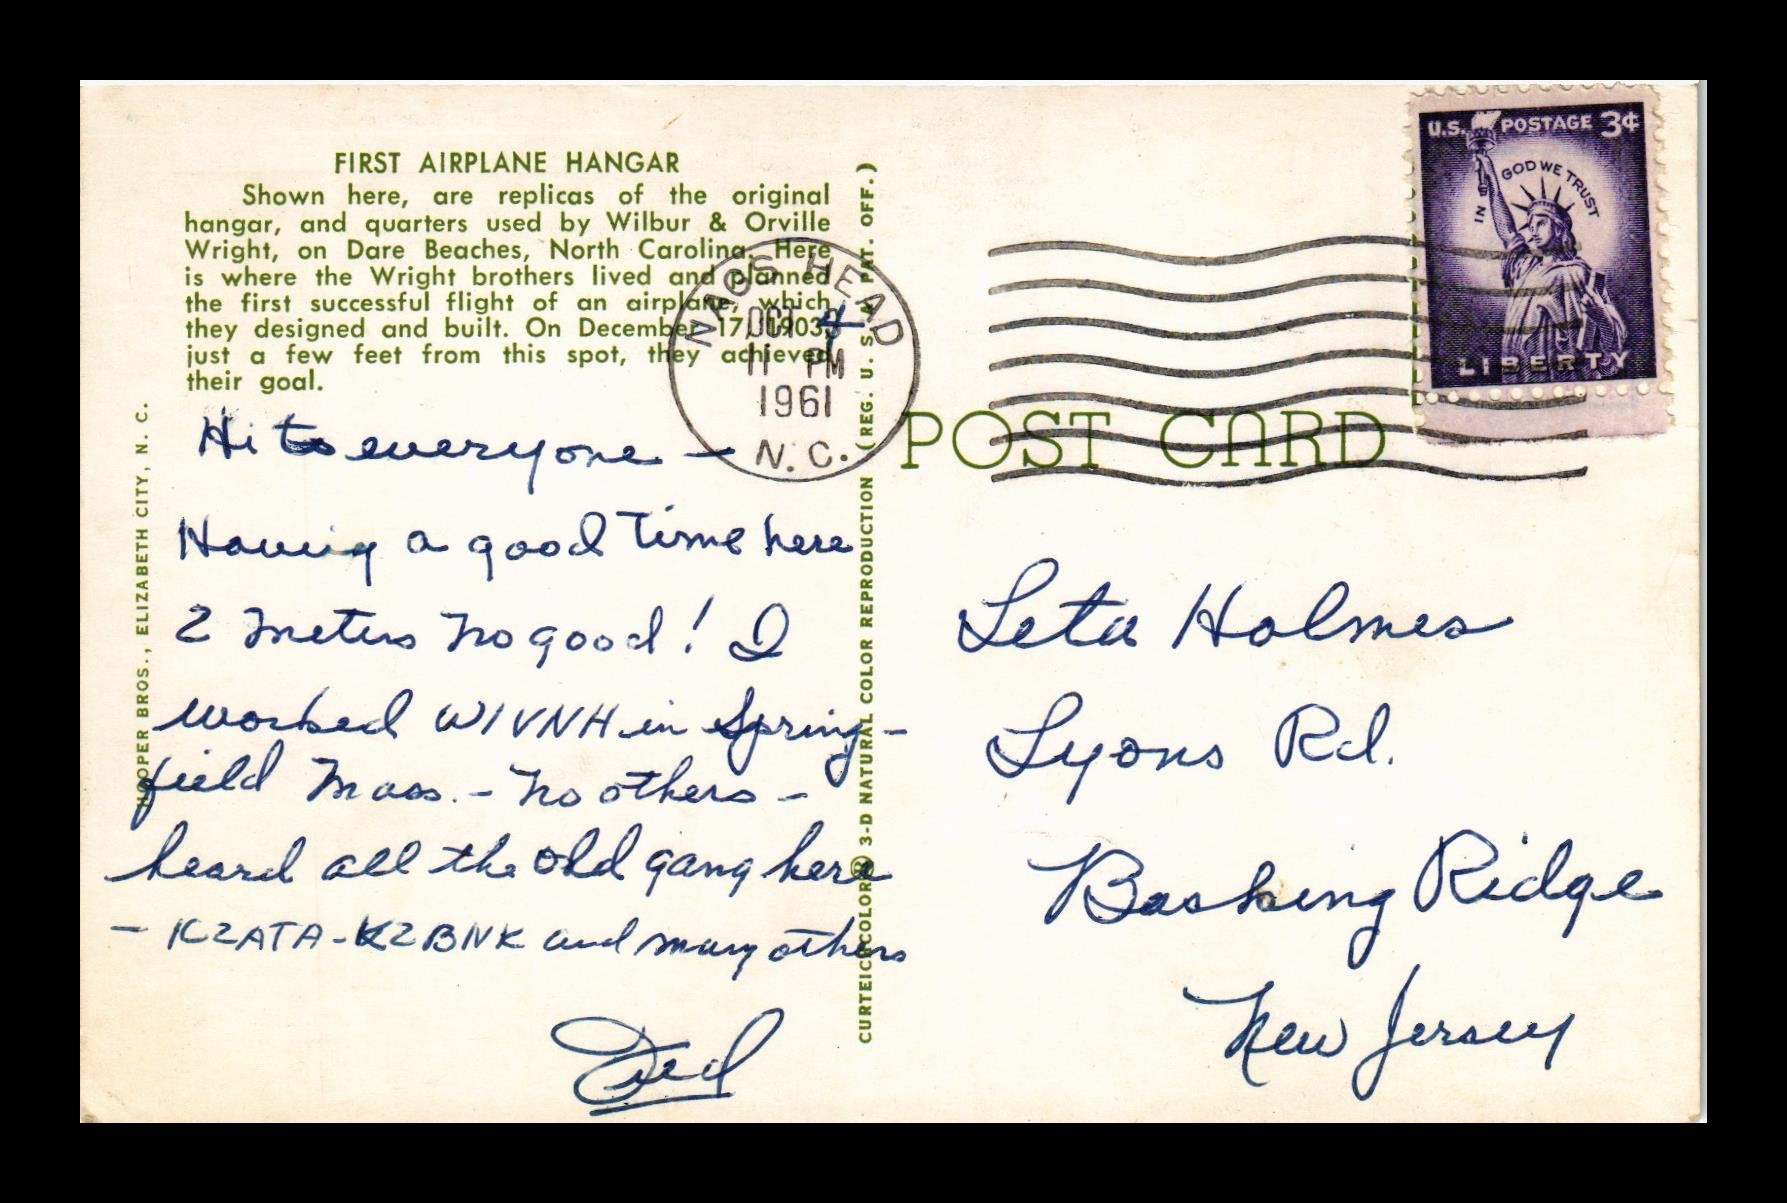 FIRST AIRPLANE HANGAR
Shown here, are replicas of the original
hangar, and quarters used by Wilbur & Orville
Wright, on Dare Beaches, North Carolina. Here
is where the Wright brothers lived and planned
the first successful flight of an airplane, which
they designed and built. On December 17, 1903,
just a few feet from this spot, they achieved
their goal.
HOOPER BROS., ELIZABETH CITY, N. C.
Hi to everyone –
Having a good time here
2 meters no good! I
worked W1VNH in Spring-
field Mass. - no others -
heard all the old gang here
- K2ATA - K2BNK and many others
CURTEICHCOLOR® 3-D NATURAL COLOR REPRODUCTION (REG. U. S. A. PAT. OFF.)
NAGS HEAD
OCT 4
11 PM
1961
N.C.
POST CARD
U.S. POSTAGE 3¢
IN GOD WE TRUST
LIBERTY
Leta Holmes
Lyons Rd.
Basking Ridge
New Jersey